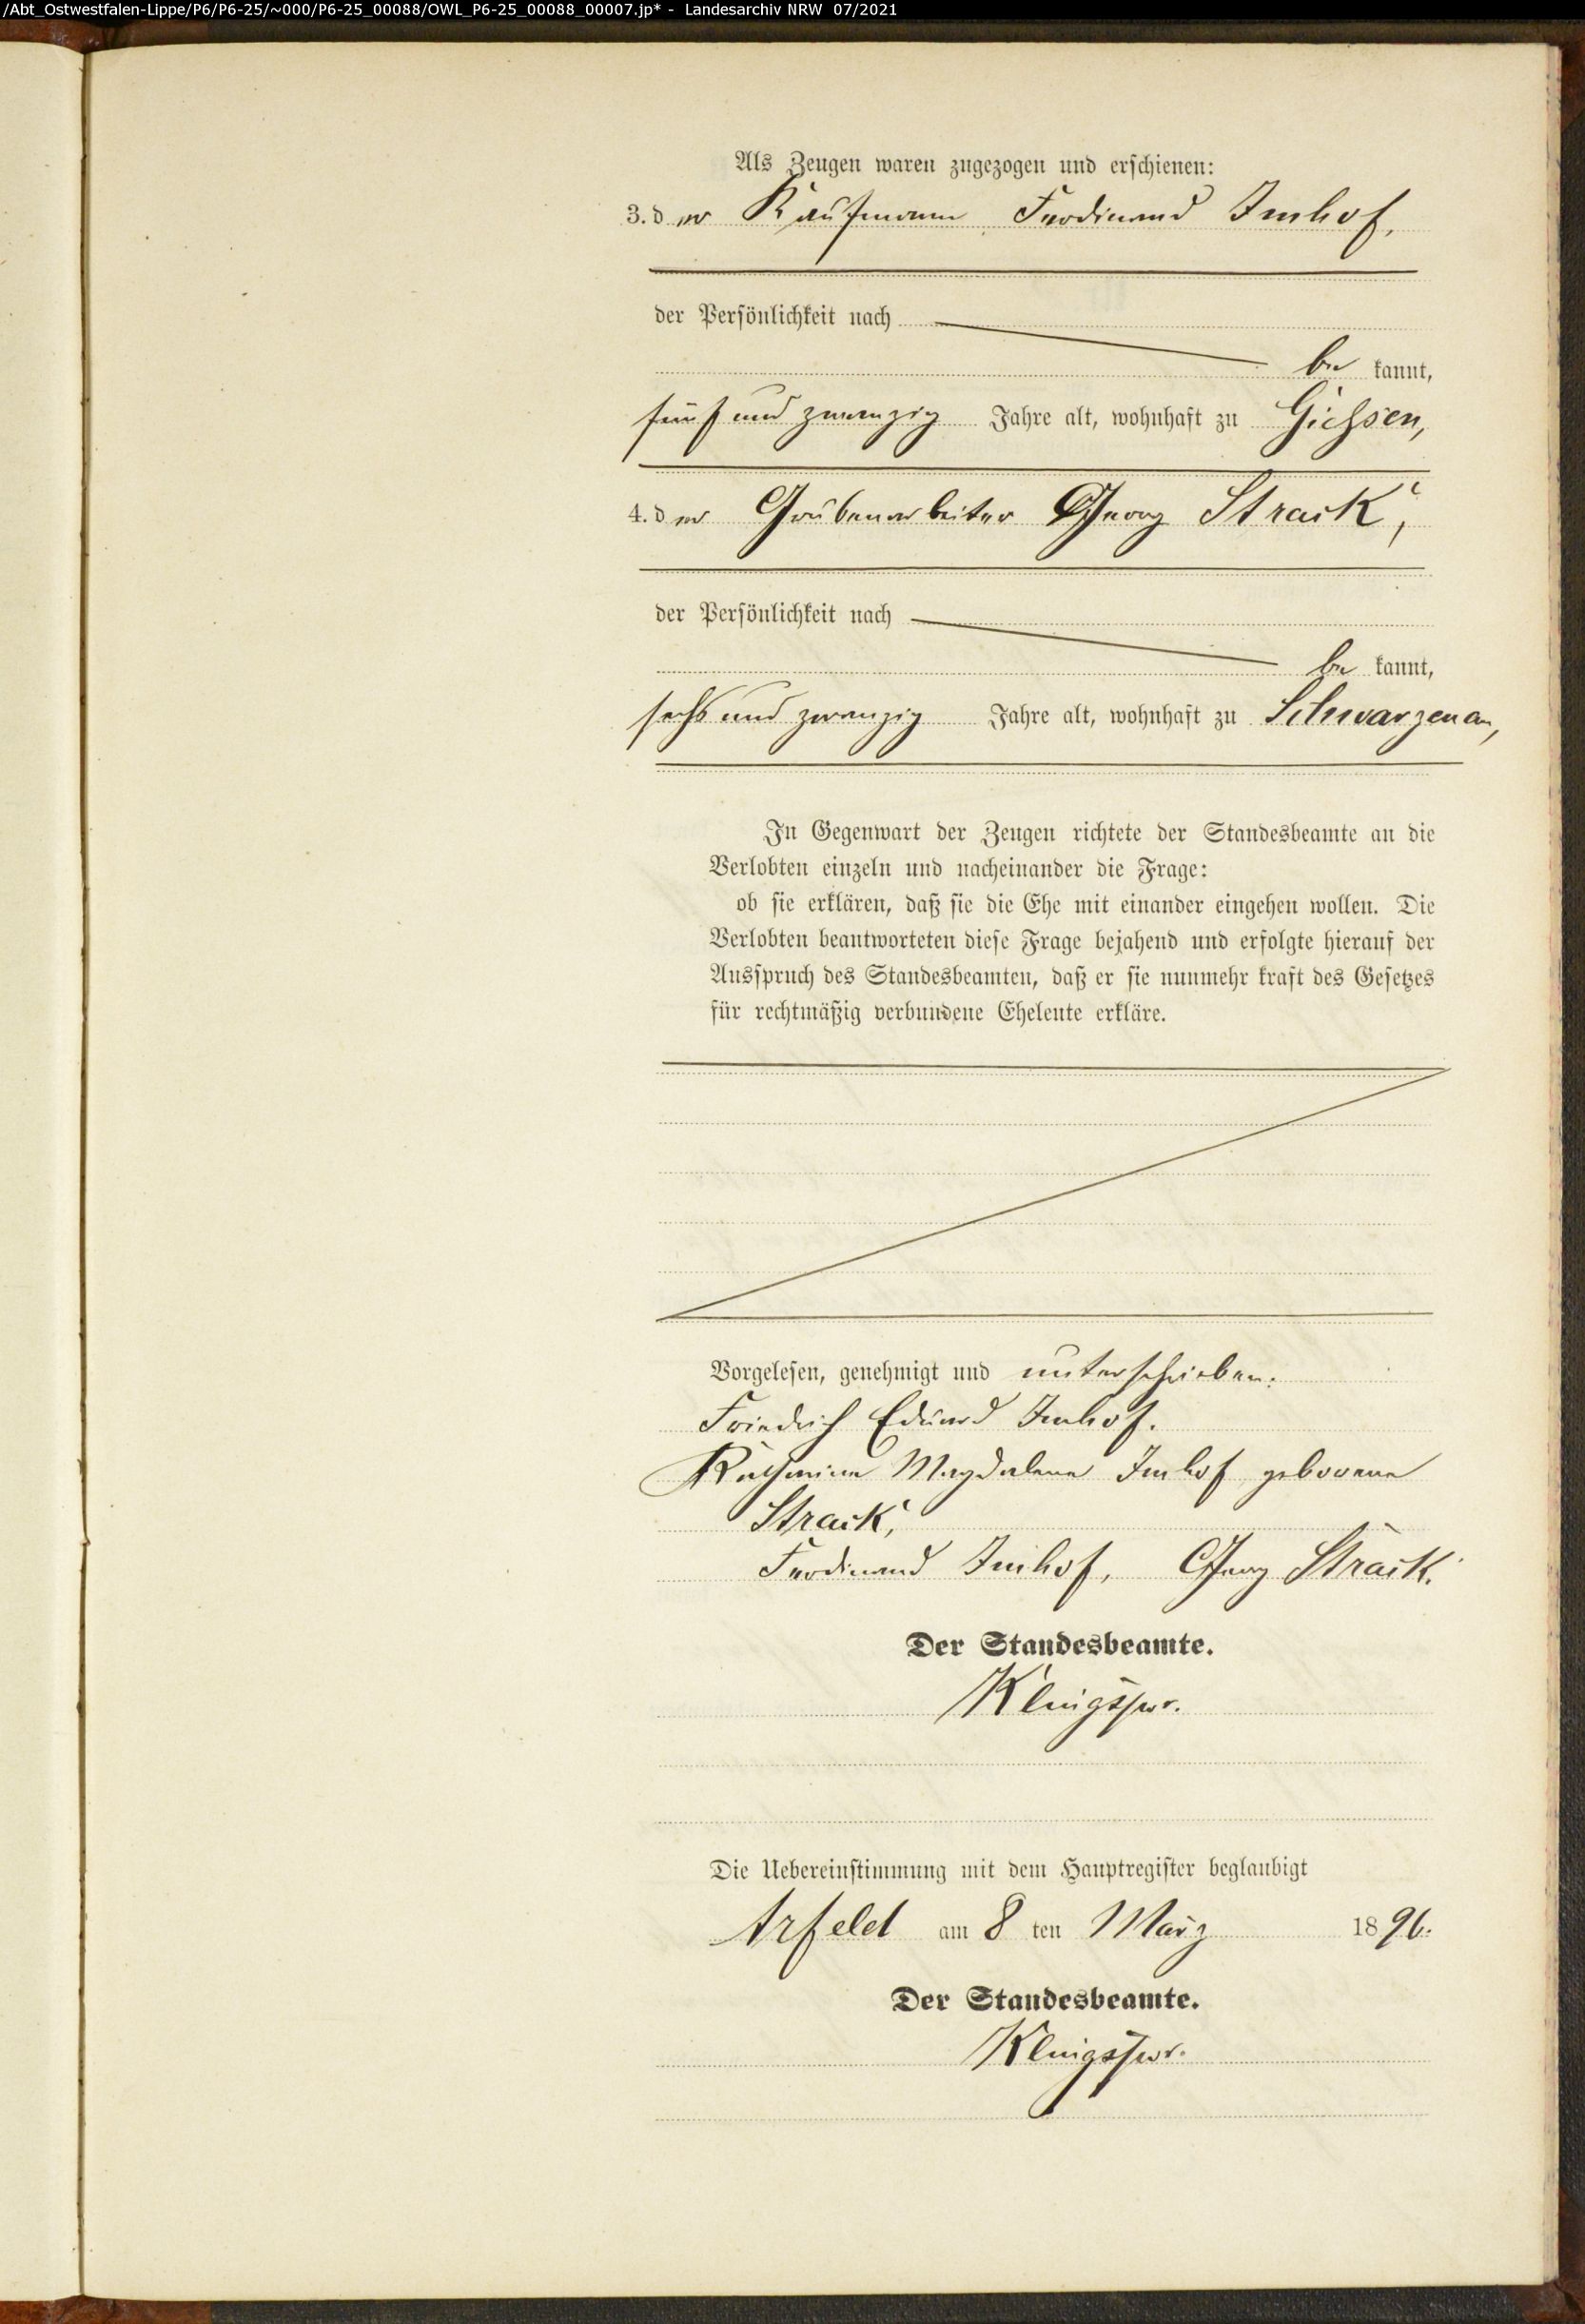 /Abt_Ostwestfalen-Lippe/P6/P6-25/~000/P6-25_00088/OWL_P6-25_00088_00007.jp* - Landesarchiv NRW 07/2021
Als Zeugen waren zugezogen und erschienen:
3. der Kaufmann Ferdinand Imhof,
der Persönlichkeit nach
be kannt,
fünf und zwanzig Jahre alt, wohnhaft zu Giessen,
4. der Grubenarbeiter Georg Strack,
der Persönlichkeit nach
be kannt,
sechs und zwanzig Jahre alt, wohnhaft zu Schwarzenau,
In Gegenwart der Zeugen richtete der Standesbeamte an die
Verlobten einzeln und nacheinander die Frage:
ob sie erklären, daß sie die Ehe mit einander eingehen wollen. Die
Verlobten beantworteten diese Frage bejahend und erfolgte hierauf der
Ausspruch des Standesbeamten, daß er sie nunmehr kraft des Gesetzes
für rechtmäßig verbundene Eheleute erkläre.
Vorgelesen, genehmigt und unterschrieben:
Friedrich Eduard Imhof.
Katharina Magdalena Imhof geborene
Strack,
Ferdinand Imhof, Georg Strack.
Der Standesbeamte.
Klingspor.
Die Uebereinstimmung mit dem Hauptregister beglaubigt
Arfeld am 8 ten März 1896.
Der Standesbeamte.
Klingspor.